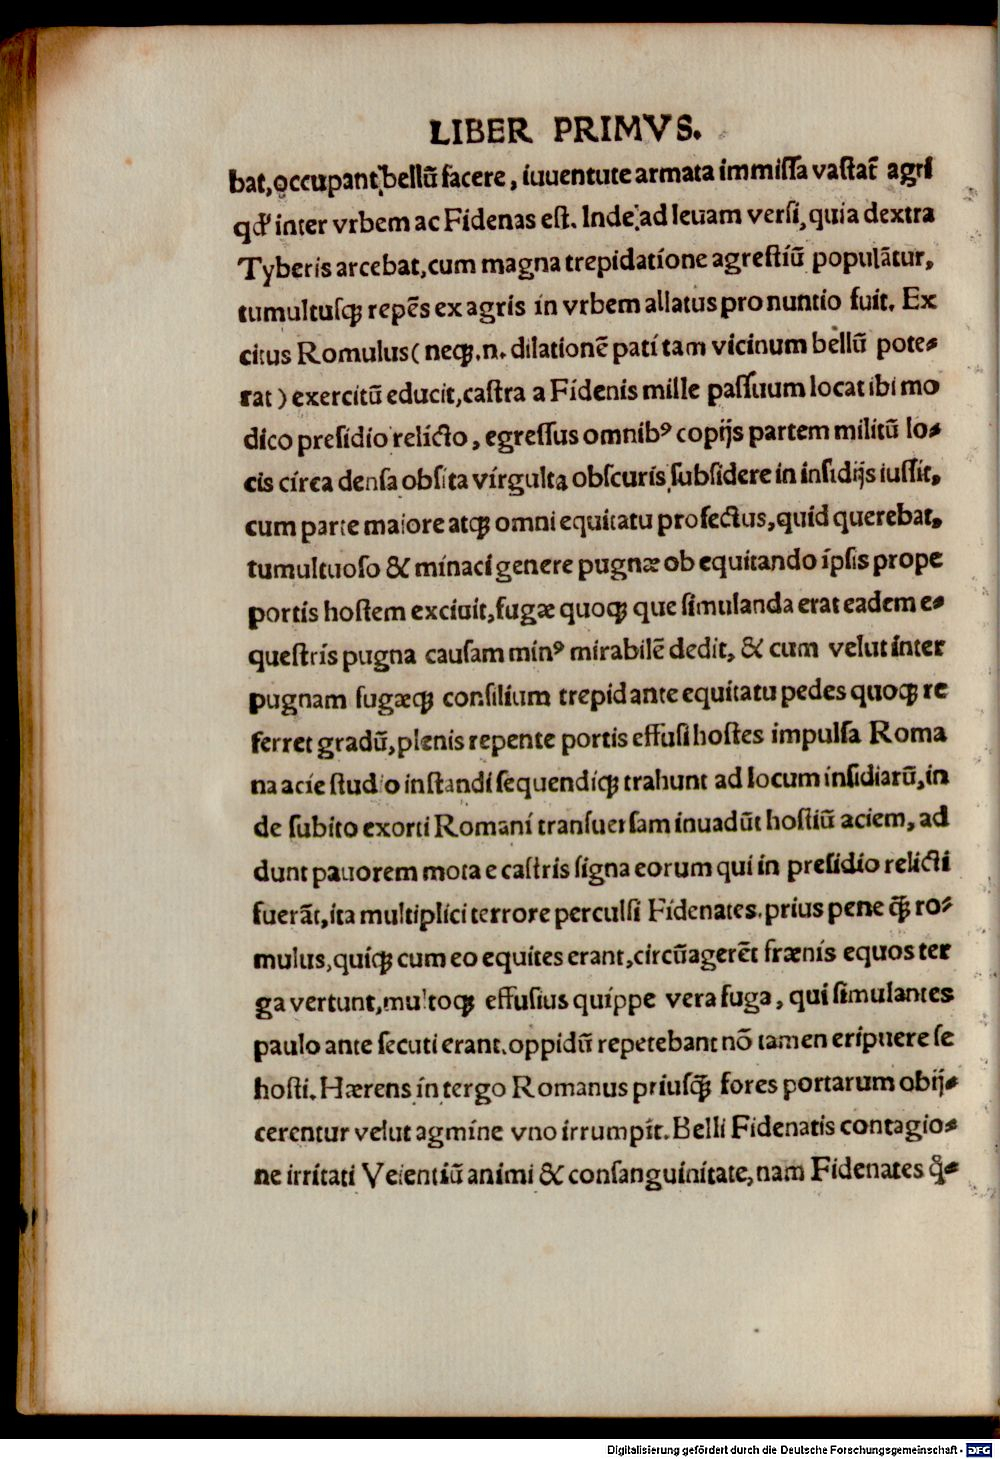 LIBER PRIMVS.
bat, occupant bellū facere, iuuentute armata immissa vastat̄ agri
qd' inter vrbem ac Fidenas est. Inde ad leuam versi, quia dextra
Tyberis arcebat, cum magna trepidatione agrestiū populātur,
tumultusqꝫ repēs ex agris in vrbem allatus pro nuntio fuit. Ex
citus Romulus ( neqꝫ .n. dilationē pati tam vicinum bellū pote-
rat ) exercitū educit, castra a Fidenis mille passuum locat ibi mo
dico presidio relicto, egressus omnibꝰ copijs partem militū lo-
cis circa densa obsita virgulta obscuris subsidere in insidijs iussit,
cum parte maiore atqꝫ omni equitatu profectus, quid querebat,
tumultuoso & minaci genere pugnæ ob equitando ipsis prope
portis hostem exciuit, fugæ quoqꝫ que simulanda erat eadem e-
questris pugna causam minꝰ mirabilē dedit, & cum velut inter
pugnam fugæqꝫ consilium trepidante equitatu pedes quoqꝫ re
ferret gradū, plenis repente portis effusi hostes impulsa Roma
na acie studio instandi sequendiqꝫ trahunt ad locum insidiarū, in
de subito exorti Romani transuersam inuadūt hostiū aciem, ad
dunt pauorem mota e castris signa eorum qui in presidio relicti
fuerāt, ita multiplici terrore perculsi Fidenates. prius pene qꝫ̄ ro-
mulus, quiqꝫ cum eo equites erant, circūagerēt frænis equos ter
ga vertunt, multoqꝫ effusius quippe vera fuga, qui simulantes
paulo ante secuti erant. oppidū repetebant nō tamen eripuere se
hosti. Hærens in tergo Romanus priusqꝫ̄ fores portarum obij-
cerentur velut agmine vno irrumpit. Belli Fidenatis contagio-
ne irritati Veientiū animi & consanguinitate, nam Fidenates qͦ-
Digitalisierung gefördert durch die Deutsche Forschungsgemeinschaft - DFG